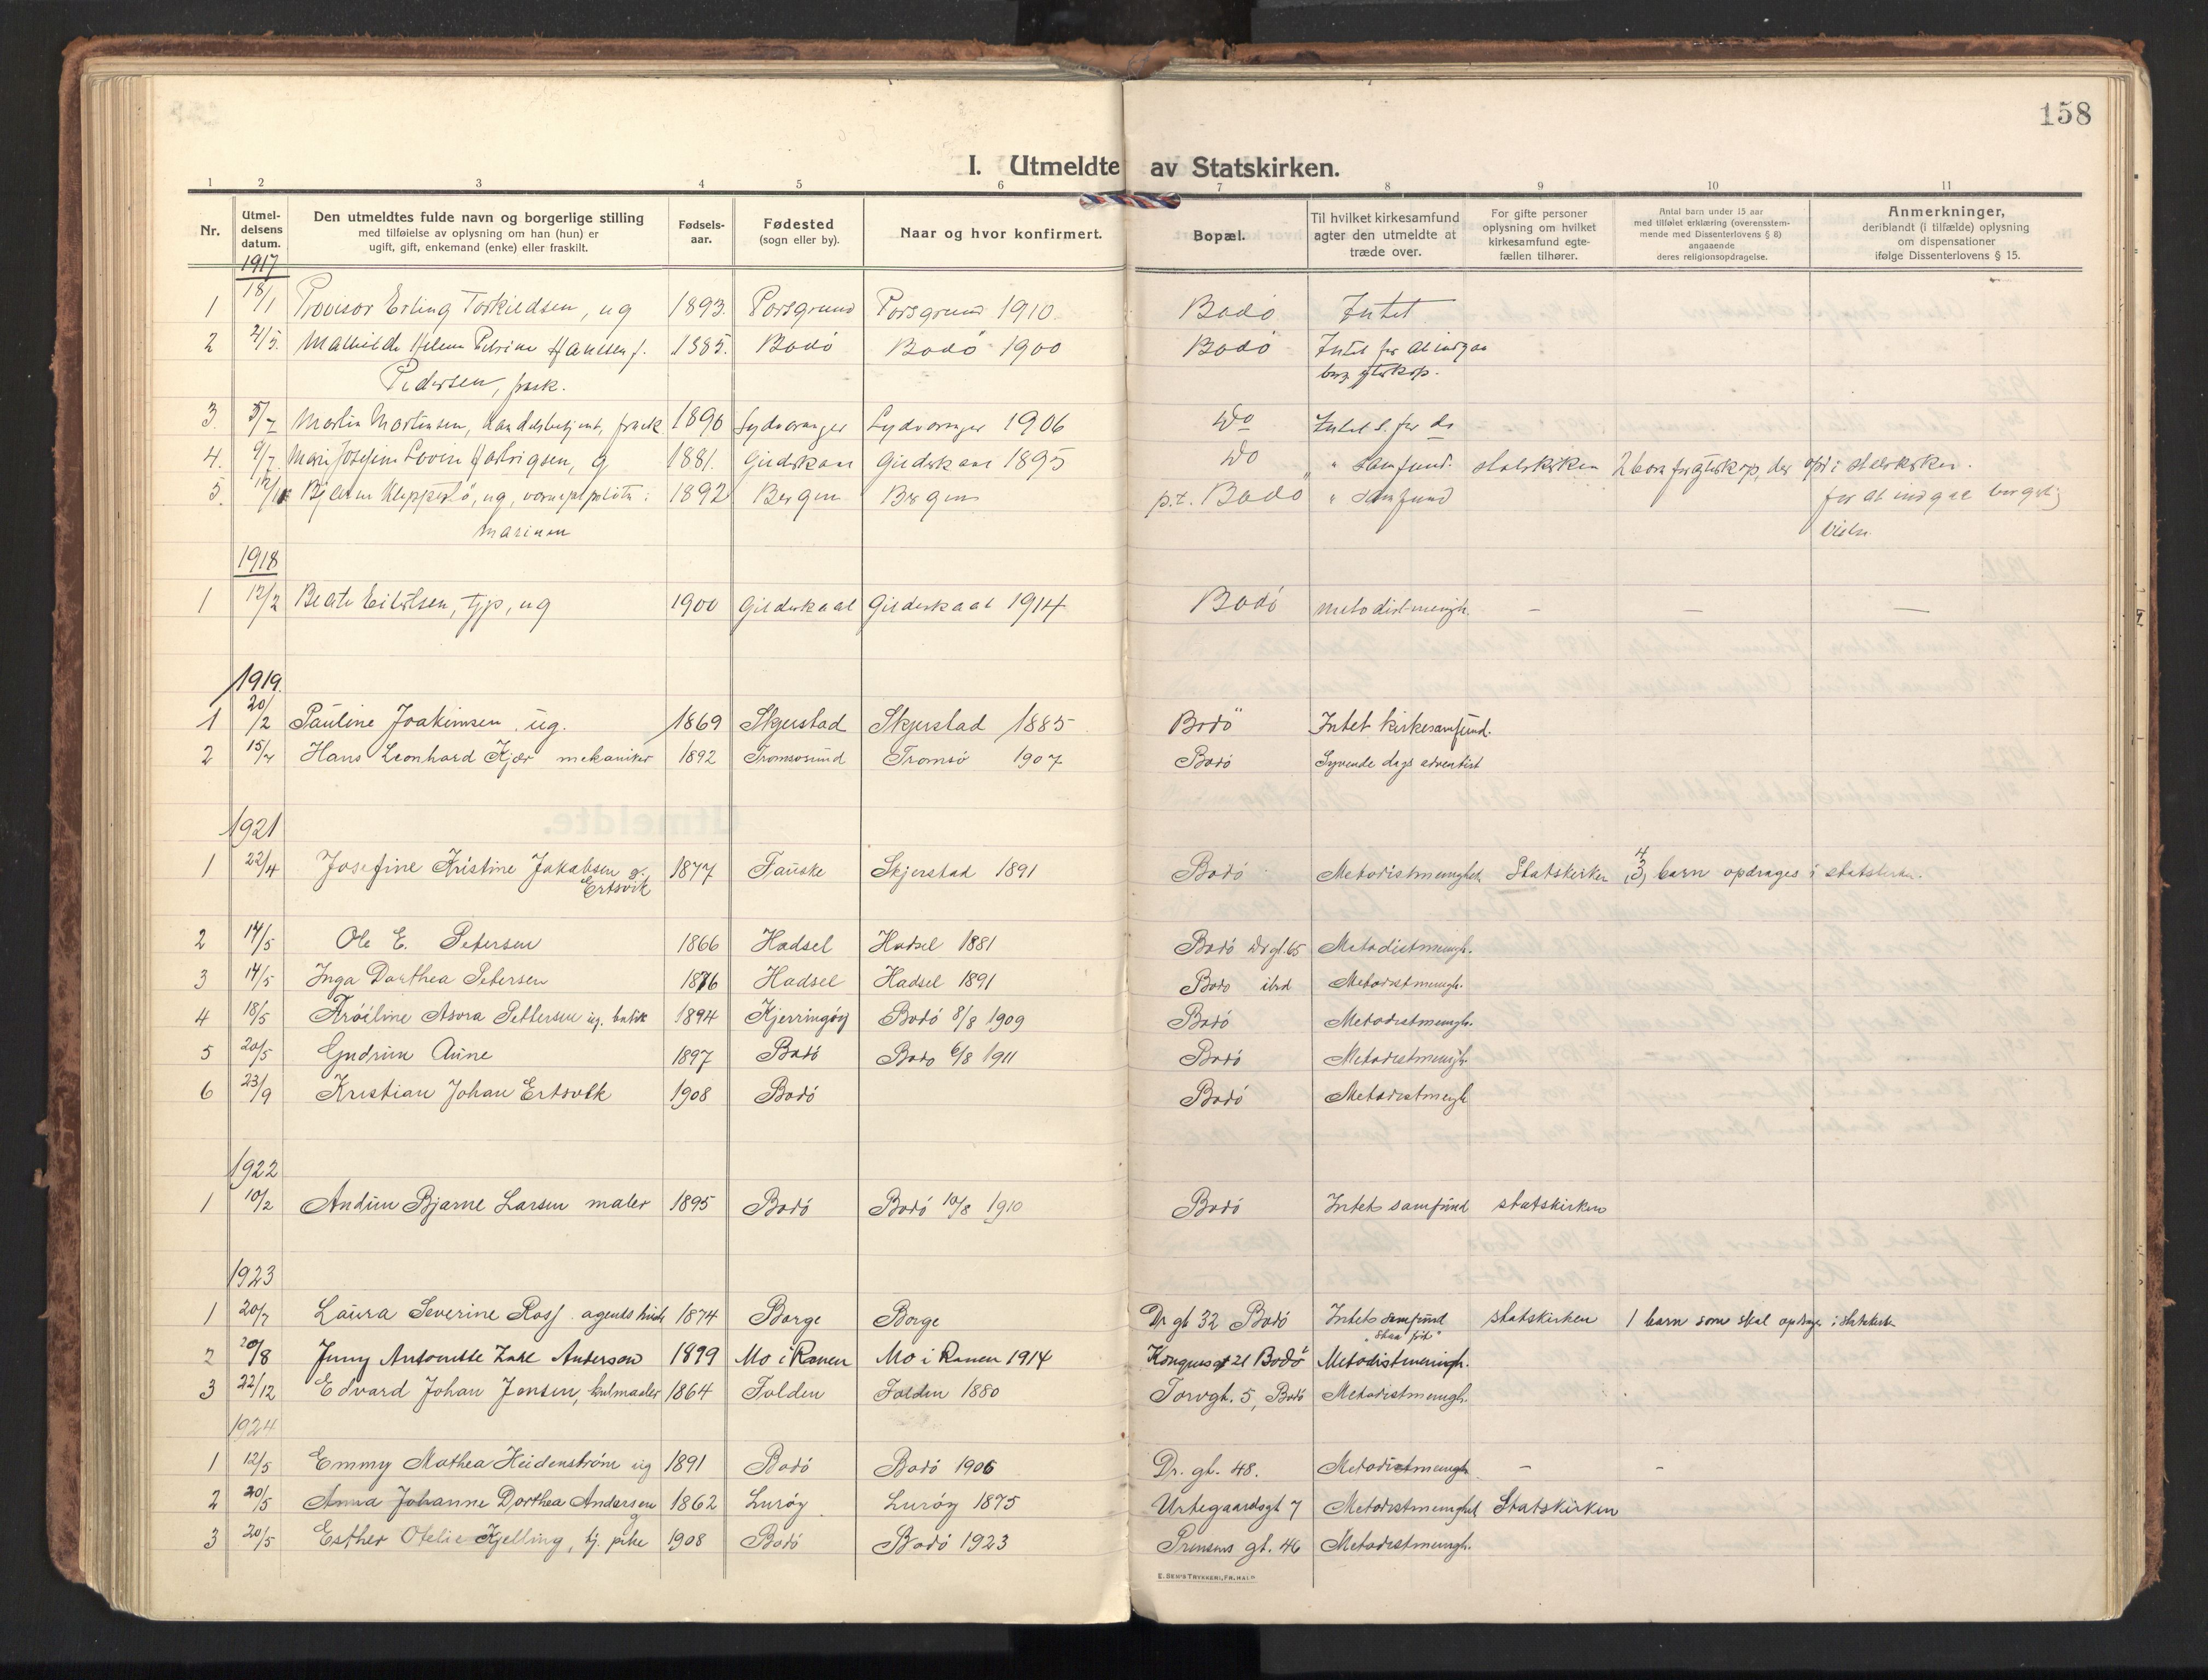 158
I. Utmeldte av Statskirken.
1 2 3 4 5 6 7 8 9 10 11
Nr. Utmeldelsens datum. Den utmeldtes fulde navn og borgerlige stilling med tilføielse av oplysning om han (hun) er ugift, gift, enkemand (enke) eller fraskilt. Fødselsaar. Fødested (sogn eller by). Naar og hvor konfirmert. Bopæl. Til hvilket kirkesamfund agter den utmeldte at træde over. For gifte personer oplysning om hvilket kirkesamfund egtefællen tilhører. Antal barn under 15 aar med tilføiet erklæring (overensstemmende med Dissenterlovens § 8) angaaende deres religionsopdragelse. Anmerkninger, deriblandt (i tilfælde) oplysning om dispensationer ifølge Dissenterlovens § 15.
1917
1 18/1 Provisor Erling Torkildsen, ug 1893. Porsgrund Porsgrund 1910. Bodö Intet
2 21/5. Mathilde Helene Petrine Hansen f. 1885. Bodö Bodö 1900 Bodö Intet for at indgaa
Pedersen, frask. borg. egtesk.
3. 5/7 Martin Mortensen, Handelsbetjent, frask. 1890 Sydvaranger Sydvaranger 1906 Do Intet s. for do
4. 9/7 1881. Gildeskaal Gildeskaal 1895 Do " samfund. statskirken 2 barn
5. Bjarne Kleppestö, ug, 1892 Bergen Bergen p.t. Bodö " samfund for at indgaa borgerlig
marinen
1918
1 12/2 Beate Eilertsen, tjp, ug 1900 Gildeskaal Gildeskaal 1914 Bodö metodistmenigh. — — —
1919.
1 20/2 Pauline Joakimsen ug. 1869 Skjerstad Skjerstad 1885 Bodö Intet kirkesamfund.
2 15/7 Hans Leonhard Kjær mekaniker 1892 Tromsøsund Tromsö 1907 Bodö Syvende dags adventist
1921
1 22/4 Josefine Kristine Jakobsen g. 1877 Fauske Skjerstad 1891 Bodö Metodistmenighet Statskirken 4 (3) barn opdrages i statskirken.
Ertsvik
2 14/5 Ole E. Petersen 1866 Hadsel Hadsel 1881 Bodö Dr gt. 65 Metodistmenigh.
3 14/5 Inga Dorthea Petersen 1876 Hadsel Hadsel 1891 Bodö ibid Metodistmenigh.
4 18/5 Asora Pettersen ug. butik 1894 Kjerringöy Bodö 8/8 1909 Bodö Metodistmenigh.
5 20/5 Gudrun Aune 1897 Bodö Bodö 6/8 1911 Bodö Metodistmenigh.
6 23/9 Kristian Johan Ertsvik 1908 Bodö Bodö Metodistmenigh
1922
1 10/2 Bjarne Larsen maler 1895 Bodö Bodö 10/8 1910 Bodö Intet samfund statskirken
1923
1 20/7 Laura Severine Ross agents hustr 1874 Borge Borge Dr gt 32 Bodö Intet samfund statskirken 1 barn som skal opdrages i statskirken
"staa frit"
2 20/8 Jenny Antonette Zahl Anderson 1899 Mo i Ranen Mo i Ranen 1914 Kongensgt 21 Bodö Metodistmenigh.
3 22/12 Edvard Johan Jensen, kulmaaler 1864 Folden Folden 1880 Torvgt. 5, Bodö Metodistmenigh.
1924
1 12/5 Emmy Mathea Heidenström ug 1891 Bodö Bodö 1906 Dr. gt. 48. Metodistmenigh – –
2 20/5 Anna Johanne Dorthea Andersen 1862 Luröy Luröy 1875 Urtegaardsgt 7 Metodistmenighet Statskirken
g
3 20/5 Esther Otelie Kjelling, tj. pike 1908 Bodö Bodö 1923 Prinsens gt. 46 Metodistmenigh.
E. SEM'S TRYKKERI, FR.HALD.